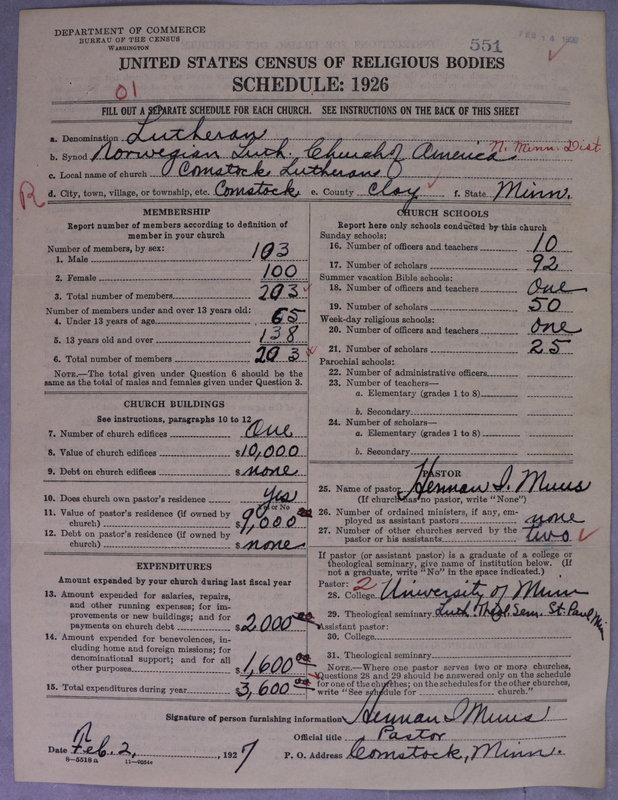 DEPARTMENT OF COMMERCE
BUREAU OF THE CENSUS
WASHINGTON
551
FEB 14
UNITED STATES CENSUS OF RELIGIOUS BODIES
SCHEDULE: 1926
01
FILL OUT A SEPARATE SCHEDULE FOR EACH CHURCH. SEE INSTRUCTIONS ON THE BACK OF THIS SHEET
a. Denomination Lutheran
b. Synod Norwegian Luth. Church of America N. Minn. Dist
c. Local name of church Comstock Lutheran
R d. City, town, village, or township, etc. Comstock e. County Clay f. State Minn.
MEMBERSHIP
Report number of members according to definition of
member in your church
Number of members, by sex:
1. Male 103
2. Female 100
3. Total number of members 203
Number of members under and over 13 years old:
4. Under 13 years of age 65
5. 13 years old and over 138
6. Total number of members 203
NOTE.—The total given under Question 6 should be
same as the total of males and females given under Question 3.
CHURCH BUILDINGS
See instructions, paragraphs 10 to 12
7. Number of church edifices One
8. Value of church edifices $10,000
9. Debt on church edifices $ none
10. Does church own pastor's residence Yes
Yes or No
11. Value of pastor's residence (if owned by
church) $9,000 00
12. Debt on pastor's residence (if owned by
church) $ none
EXPENDITURES
Amount expended by your church during last fiscal year
13. Amount expended for salaries, repairs,
and other running expenses; for im-
provements or new buildings; and for
payments on church debt $2,000 00
14. Amount expended for benevolences, in-
cluding home and foreign missions; for
denominational support; and for all
other purposes $1,600 00
15. Total expenditures during year $3,600 00
CHURCH SCHOOLS
Report here only schools conducted by this church
Sunday schools:
16. Number of officers and teachers 10
17. Number of scholars 92
Summer vacation Bible schools:
18. Number of officers and teachers One
19. Number of scholars 50
Week-day religious schools:
20. Number of officers and teachers One
21. Number of scholars 25
Parochial schools:
22. Number of administrative officers
23. Number of teachers—
a. Elementary (grades 1 to 8)
b. Secondary
24. Number of scholars—
a. Elementary (grades 1 to 8)
b. Secondary
PASTOR
25. Name of pastor Herman I. Muus
(If church has no pastor, write "None")
26. Number of ordained ministers, if any, em-
ployed as assistant pastors none
27. Number of other churches served by the
pastor or his assistants two
If pastor (or assistant pastor) is a graduate of a college or
theological seminary, give name of institution below. (If
not a graduate, write "No" in the space indicated.)
Pastor: 2
28. College University of Minn
29. Theological seminary Luth. Theol. Sem. St. Paul Minn
Assistant pastor:
30. College
31. Theological seminary
NOTE.—Where one pastor serves two or more churches,
Questions 28 and 29 should be answered only on the schedule
for one of the churches; on the schedules for the other churches,
write "See schedule for church."
Signature of person furnishing information Herman I Muus
Official title Pastor
Date Feb. 2, 1927 P. O. Address Comstock, Minn.
8—5518 a